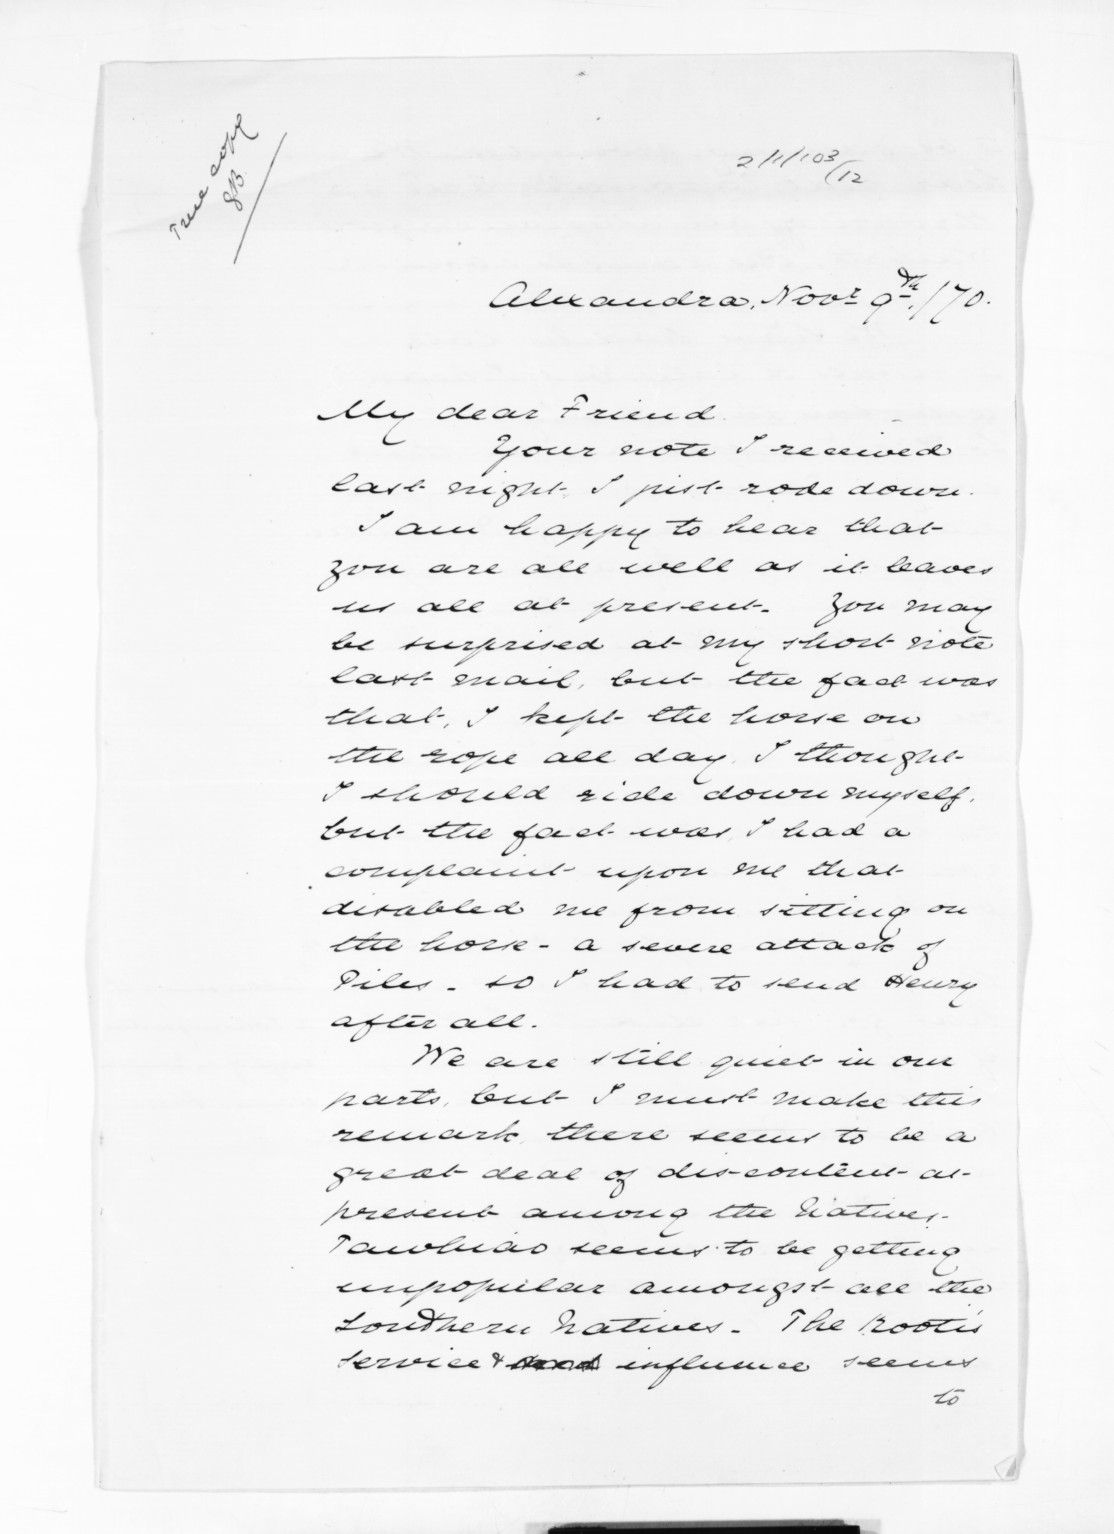 True copy
2/1/103/12
Alexandra, Novr 9th/70.
My dear Friend.
Your note I received
last night, I just rode down.
I am happy to hear that
you are all well as it leaves
us all at present. You may
be surprised at my short note
last mail, but the fact was
that, I kept the horse on
the rope all day, I thought
I should ride down myself,
but the fact was, I had a
complaint upon me that
disabled me from sitting on
the horse - a severe attack of
Piles - so I had to send Henry
after all.
We are still quiet in our
parts, but I must make this
remark, there seems to be a
great deal of dis-content at
present among the Natives.
Tawhiao seems to be getting
unpopular amongst all the
Southern Natives. The Kooti's
service & influence seems
to